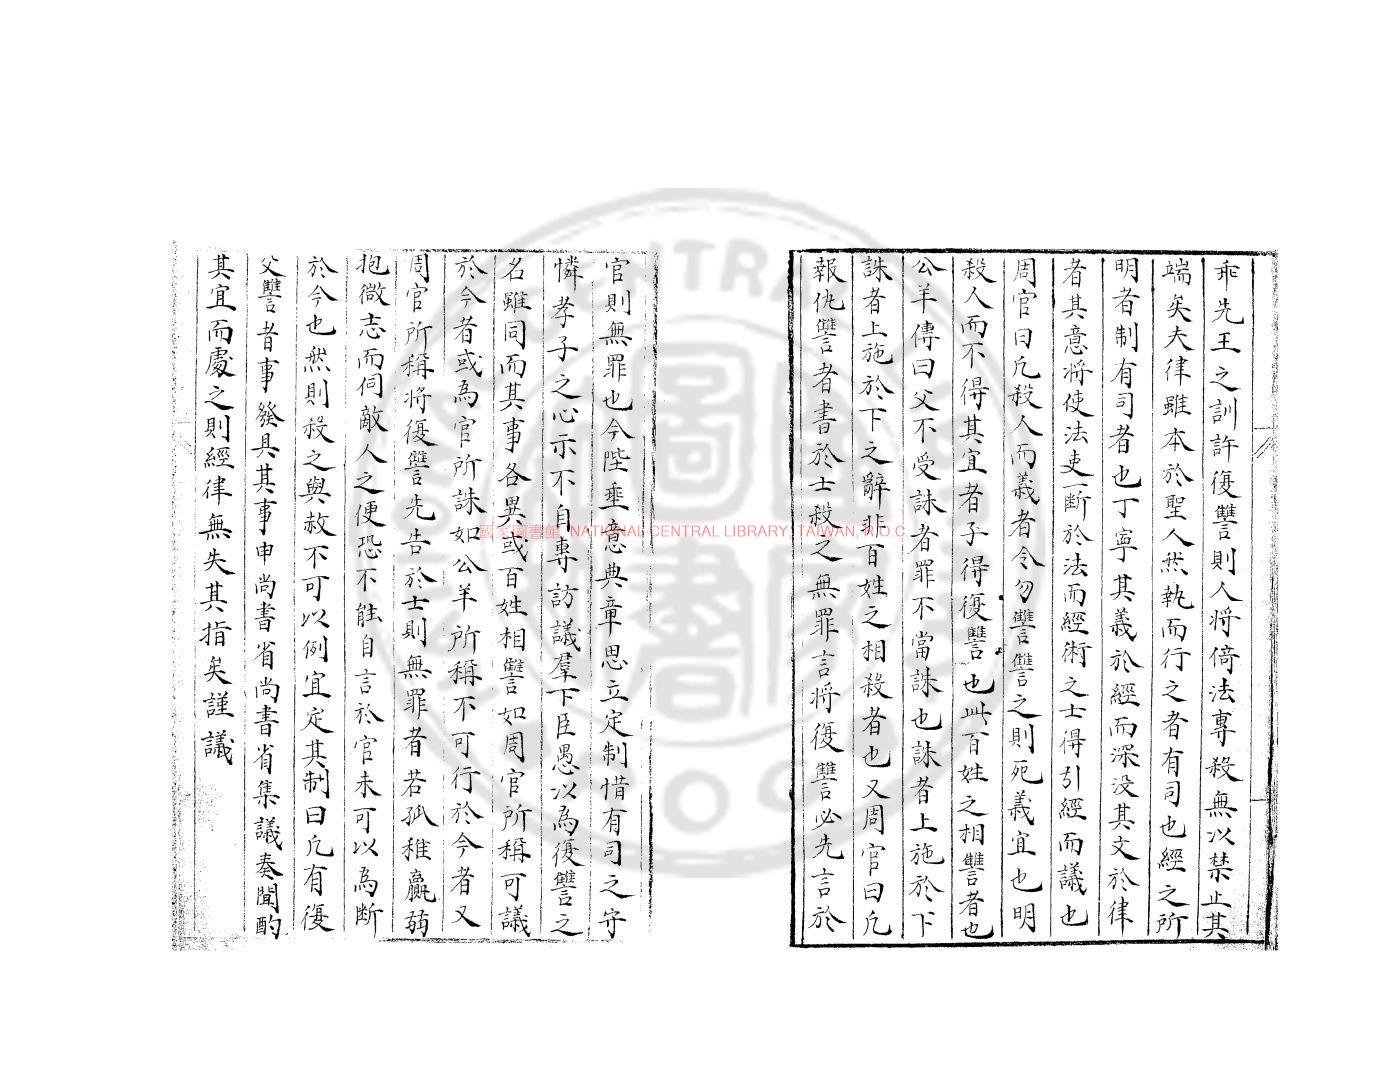 乖先王之訓許復讐則人將倚法專殺無以禁止其
端矣夫律雖本於聖人然執而行之者有司也經之所
明者制有司者也丁寧其義於經而深没其文於律
者其意將使法吏一斷於法而經術之士得引經而議也
周官曰凢殺人而義者令勿讐讐之則死義宜也明
殺人而不得其宜者子得復讐也此百姓之相讐者也
公羊傳曰父不受誅者罪不當誅也誅者上施於下
誅者上施於下之辭非百姓之相殺者也又周官曰凢
報仇讐者書於士殺之無罪言將復讐必先言於
官則無罪也今陛垂意典章思立定制惜有司之守
憐孝子之心示不自專訪議羣下臣愚以為復讐之
名雖同而其事各異或百姓相讐如周官所稱可議
於今者或為官所誅如公羊所稱不可行於今者又
周官所稱將復讐先告於士則無罪者若孤稚羸弱
抱微志而伺敵人之便恐不能自言於官未可以為斷
於今也然則殺之與赦不可以例宜定其制曰凢有復
父讐者事發具其事申尚書省尚書省集議奏聞酌
其宜而處之則經律無失其指矣謹議
國家圖書館, NATIONAL CENTRAL LIBRARY, TAIWAN, R.O.C.